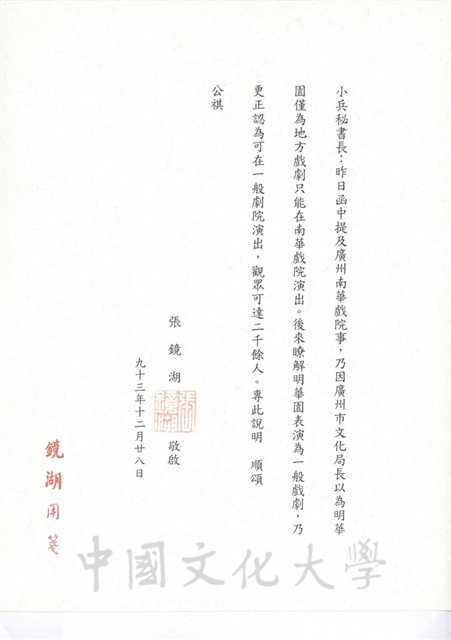 小兵秘書長：昨日函中提及廣州南華戲院事，乃因廣州市文化局長以為明華
園僅為地方戲劇只能在南華戲院演出。後來瞭解明華園表演為一般戲劇，乃
更正認為可在一般劇院演出，觀眾可達二千餘人。專此說明　順頌
公祺
張鏡湖　敬啟
九十三年十二月廿八日
鏡湖用箋
中國文化大學